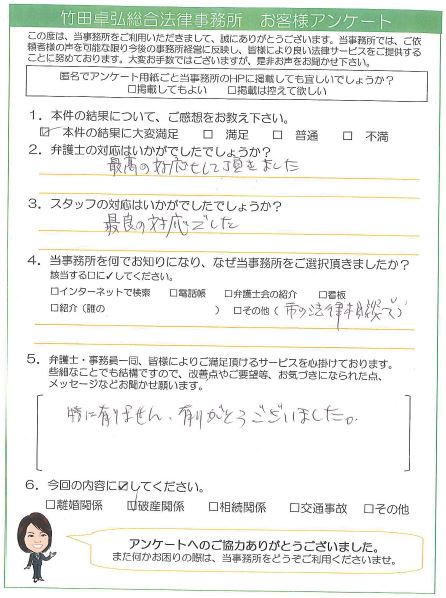 竹田卓弘総合法律事務所　お客様アンケート
この度は、当事務所をご利用いただきまして、誠にありがとうございます。当事務所では、ご依
頼者様の声を可能な限り今後の事務所経営に反映し、皆様により良い法律サービスをご提供する
ことに努めております。大変お手数ではございますが、是非お声をお聞かせ下さい。
匿名でアンケート用紙ごと当事務所のHPに掲載しても宜しいでしょうか？
□掲載してもよい　□掲載は控えて欲しい
1．本件の結果について、ご感想をお教え下さい。
☑ 本件の結果に大変満足　□ 満足　□ 普通　□ 不満
2．弁護士の対応はいかがでしたでしょうか？
最高の対応をして頂きました
3．スタッフの対応はいかがでしたでしょうか？
最良の対応でした
4．当事務所を何でお知りになり、なぜ当事務所をご選択頂きましたか？
該当する□に✓してください。
□インターネットで検索　□電話帳　□弁護士会の紹介　□看板
□紹介（誰の　　　　　　　）　□その他（市の法律相談で）
5．弁護士・事務員一同、皆様によりご満足頂けるサービスを心掛けております。
些細なことでも結構ですので、改善点やご要望等、お気づきになられた点、
メッセージなどお聞かせ願います。
特に有りません、有りがとうございました。
6．今回の内容に☑してください。
□離婚関係　☑破産関係　□相続関係　□交通事故　□その他
アンケートへのご協力ありがとうございました。
また何かお困りの際は、当事務所をどうぞご利用くださいませ。